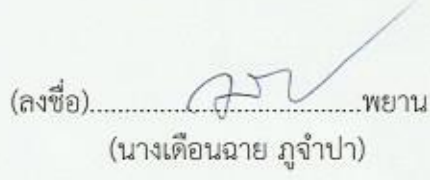 (ลงชื่อ)....................................พยาน
(นางเดือนฉาย ภูจำปา)